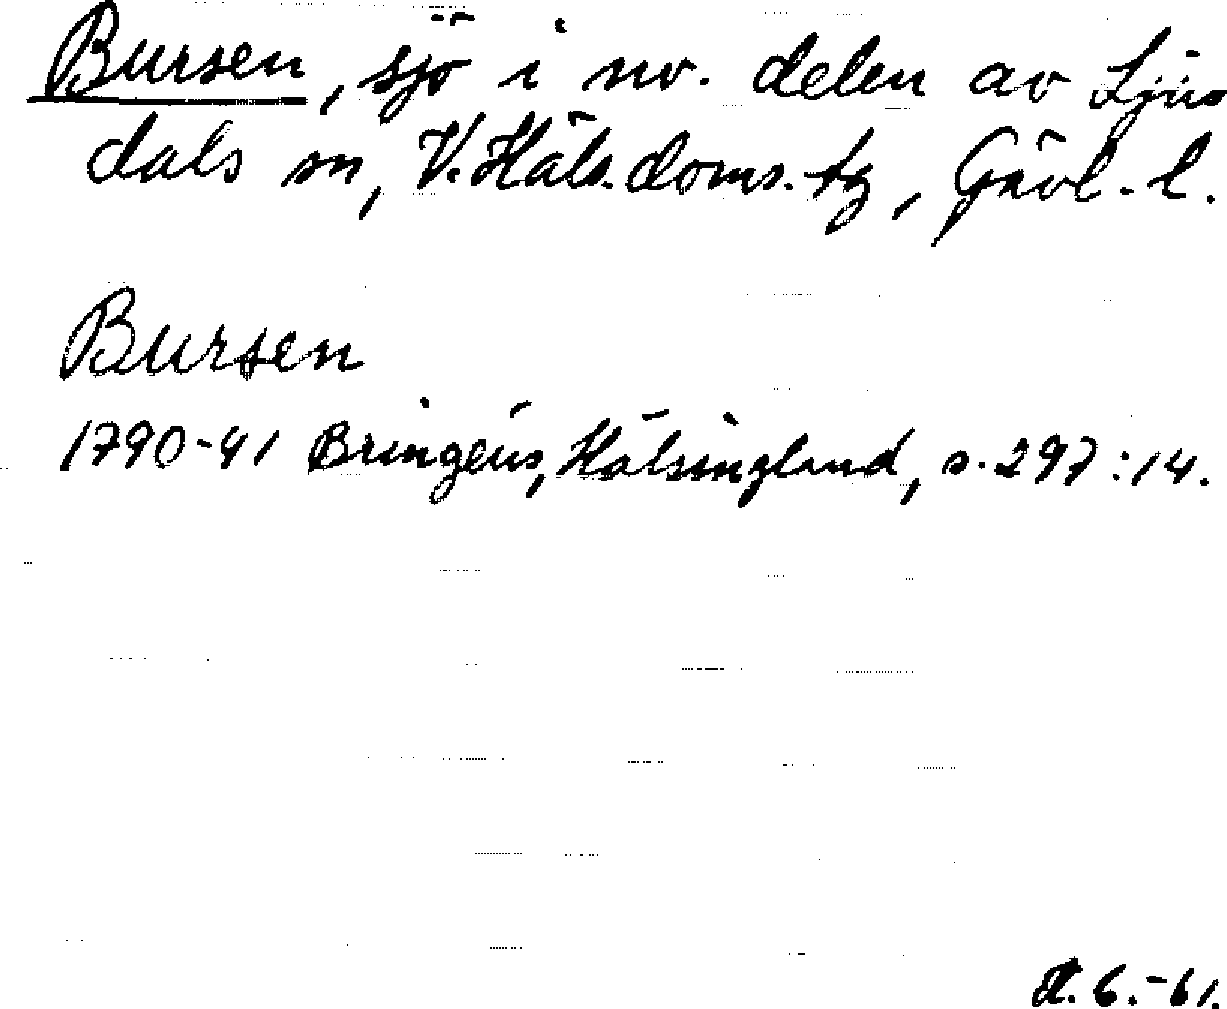 Bursen, sjö i nv. delen av Ljus
dals sn, V. Häls. doms. tg, Gävl. l.
Bursen
1790-91 Bringéus, Hälsingland, s. 297:14.
6.-61.